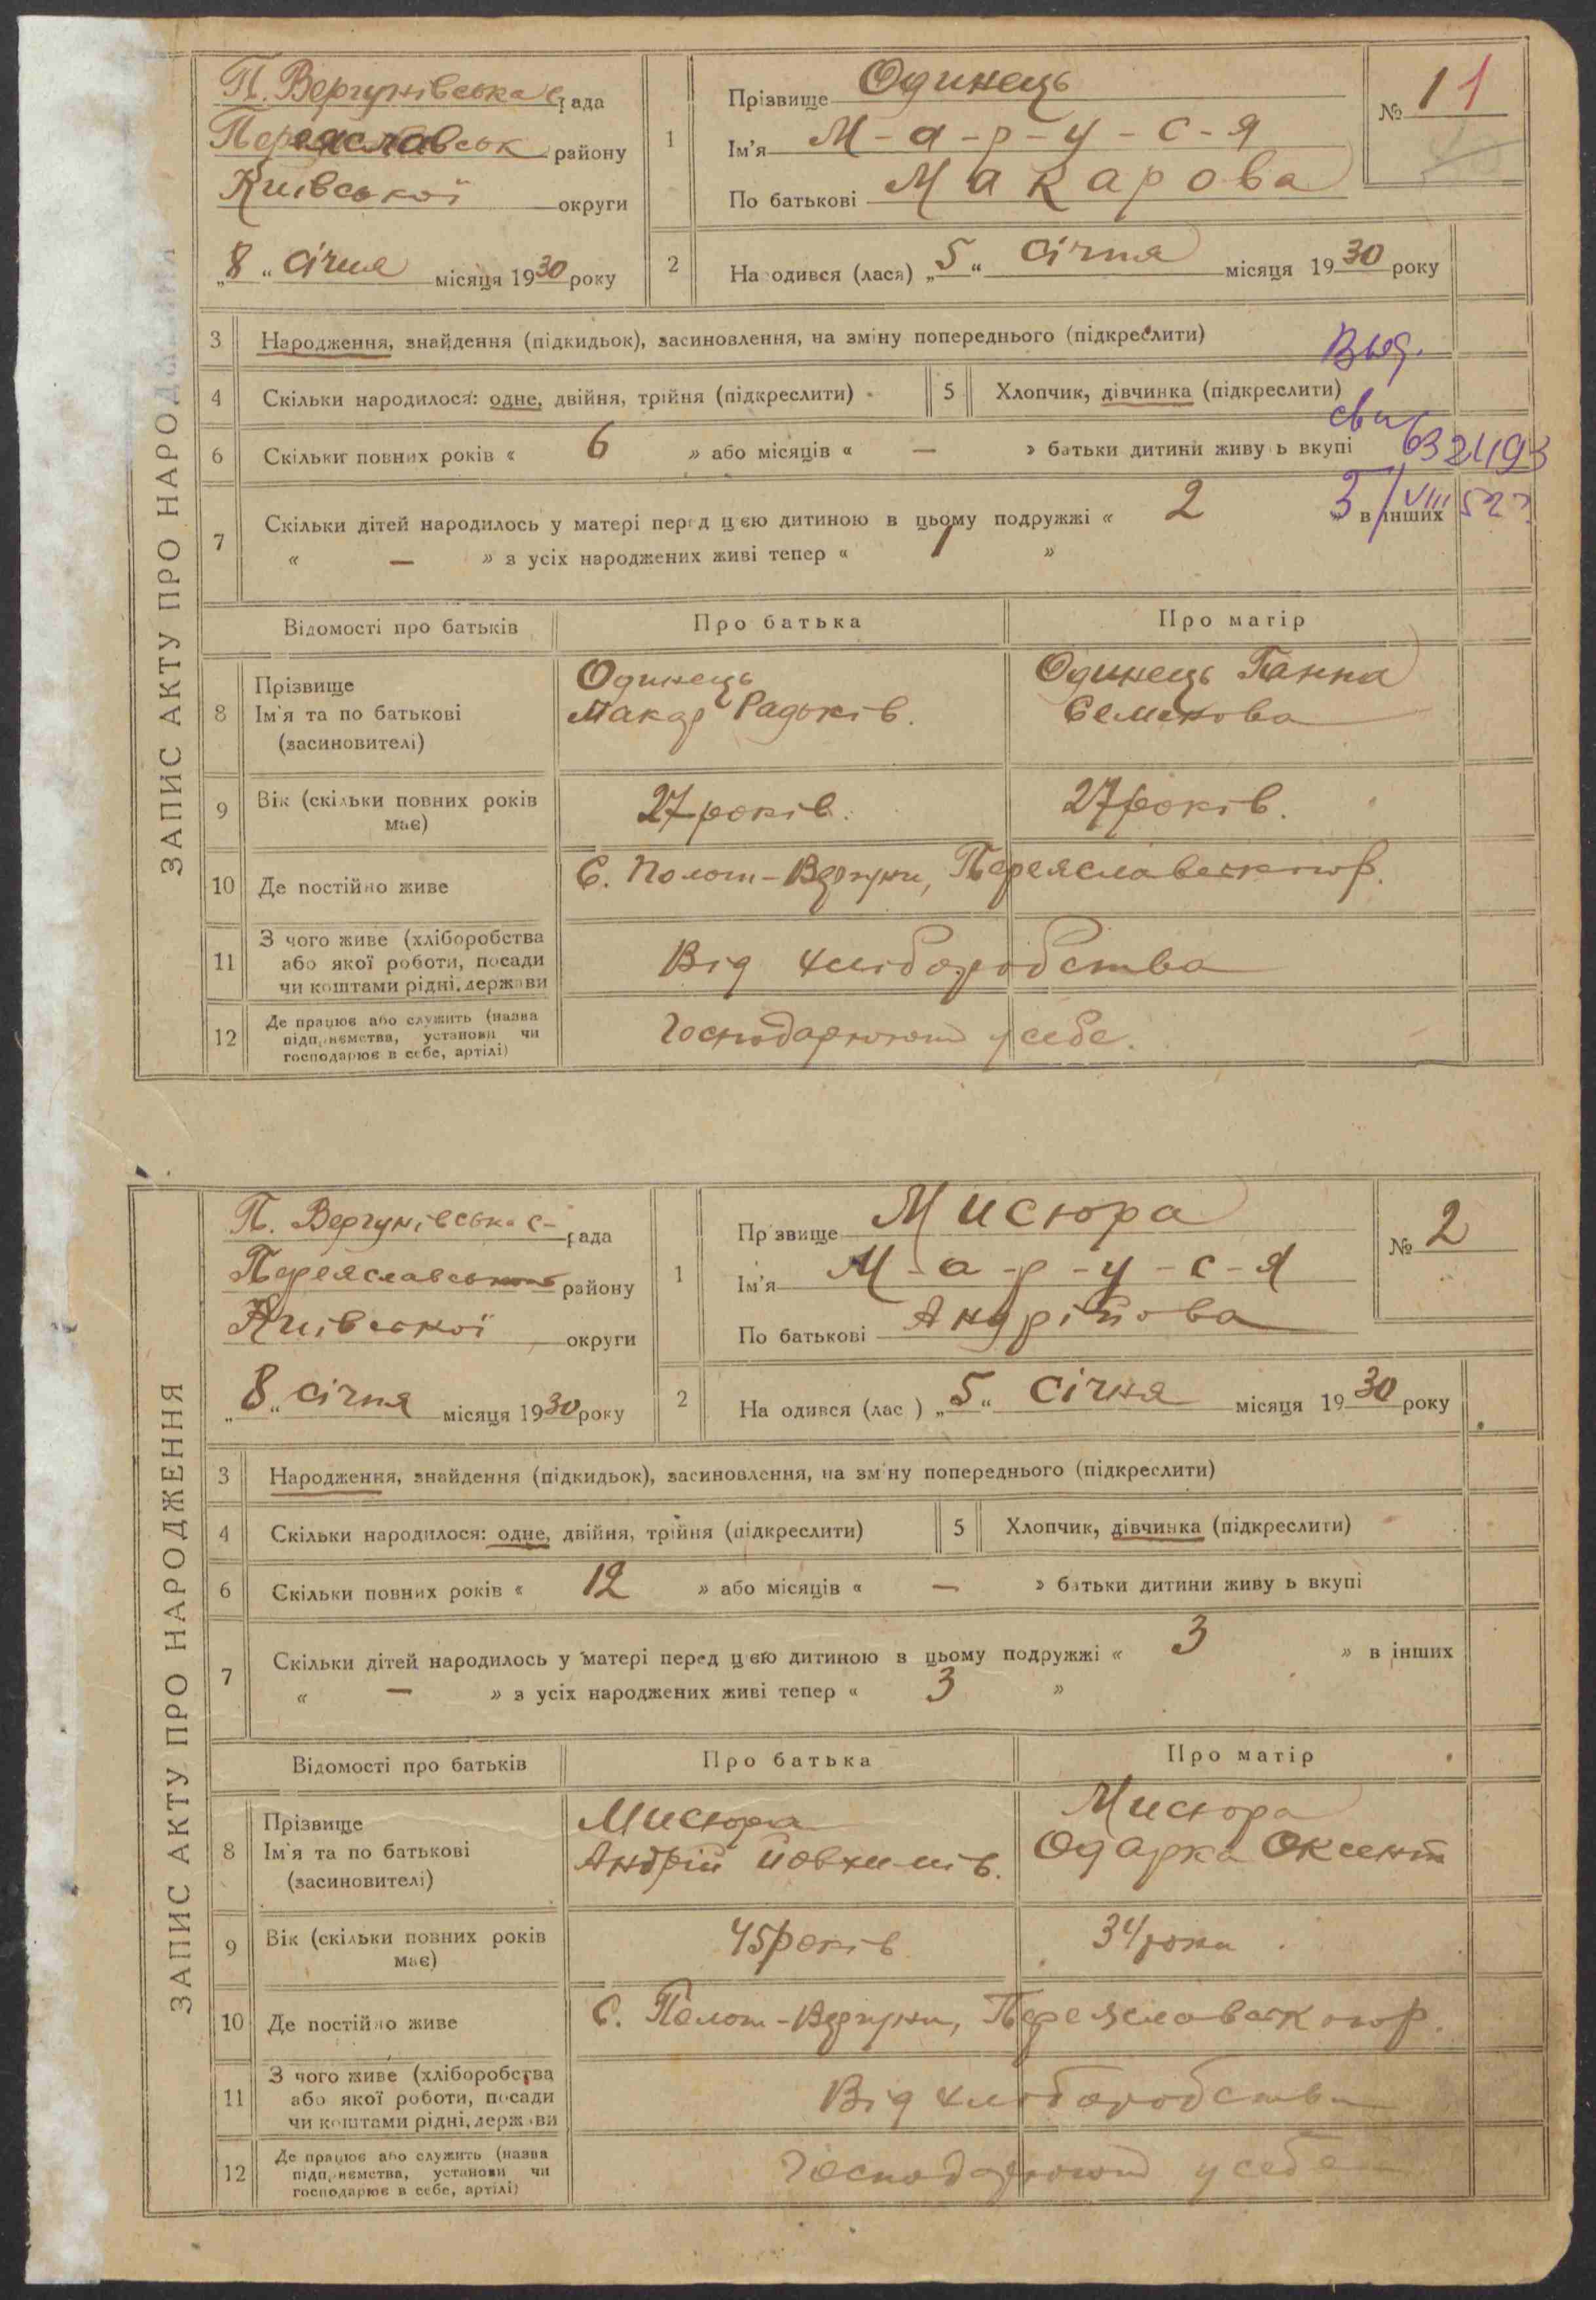 ЗАПИС АКТУ ПРО НАРОДЖЕННЯ
П. Вергунівська с. рада
Переяславськ району
Київської округи
„8“ січня місяця 1930 року
1
Прізвище Одинець
Ім'я М-а-р-у-с-я
По батькові Макарова
№ 1 1
2
На одився (лася) „5“ січня місяця 1930 року
3 Народження, знайдення (підкидьок), засиновлення, на зміну попереднього (підкреслити)
Выд.
4 Скільки народилося: одне, двійня, трійня (підкреслити)
5 Хлопчик, дівчинка (підкреслити)
сви
6 Скільки повних років « 6 » або місяців « — » батьки дитини живу ь вкупі
632493
7 Скільки дітей народилось у матері перед цією дитиною в цьому подружжі « 2 » в інших
5/VIII 52 г.
« — » з усіх народжених живі тепер « 1 »
Відомості про батьків
Про батька
Про матір
8 Прізвище
Ім'я та по батькові
(засиновителі)
Одинець
Макар Радьків.
Одинець Ганна
Семенова
9 Вік (скільки повних років
має)
27 років.
27 років.
10 Де постійно живе
С. Полог-Вергуни, Переяславськ
11 З чого живе (хліборобства
або якої роботи, посади
чи коштами рідні, держави
Від хліборобства
12 Де працює або служить (назва
підприємства, установи чи
господарює в себе, артілі)
Господарюют у себе.
ЗАПИС АКТУ ПРО НАРОДЖЕННЯ
П. Вергунівська с- рада
Переяславського району
Київської округи
„8“ січня місяця 1930 року
1
Пр звище Мисюра
Ім'я М-а-р-у-с-я
По батькові Андрійова
№ 2
2
На одився (лас ) „5“ січня місяця 1930 року
3 Народження, знайдення (підкидьок), засиновлення, на зм ну попереднього (підкреслити)
4 Скільки народилося: одне, двійня, трійня (підкреслити)
5 Хлопчик, дівчинка (підкреслити)
6 Скільки повних років « 12 » або місяців « — » батьки дитини живу ь вкупі
7 Скільки дітей народилось у матері перед цією дитиною в цьому подружжі « 3 » в інших
« — » з усіх народжених живі тепер « 3 »
Відомості про батьків
Про батька
Про матір
8 Прізвище
Ім'я та по батькові
(засиновителі)
Мисюра
Андрій Йовхимів.
Мисюра
Одарка Оксент
9 Вік (скільки повних років
має)
45 років
34 роки
10 Де постійно живе
С. Полог-Вергуни, Переяславськ
11 З чого живе (хліборобства
або якої роботи, посади
чи коштами рідні, держави
Від хліборобства
12 Де працює або служить (назва
підприємства, установи чи
господарює в себе, артілі)
Господарюют у себе